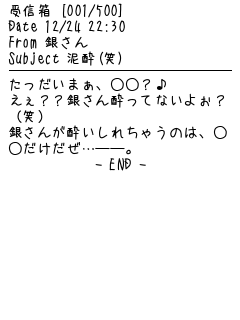 受信箱 [001/500]
Date 12/24 22:30
From 銀さん
Subject 泥酔(笑)
たっだいまぁ、○○?♪
えぇ??銀さん酔ってないよぉ?
(笑)
銀さんが酔いしれちゃうのは、○
○だけだぜ…――。
- END -